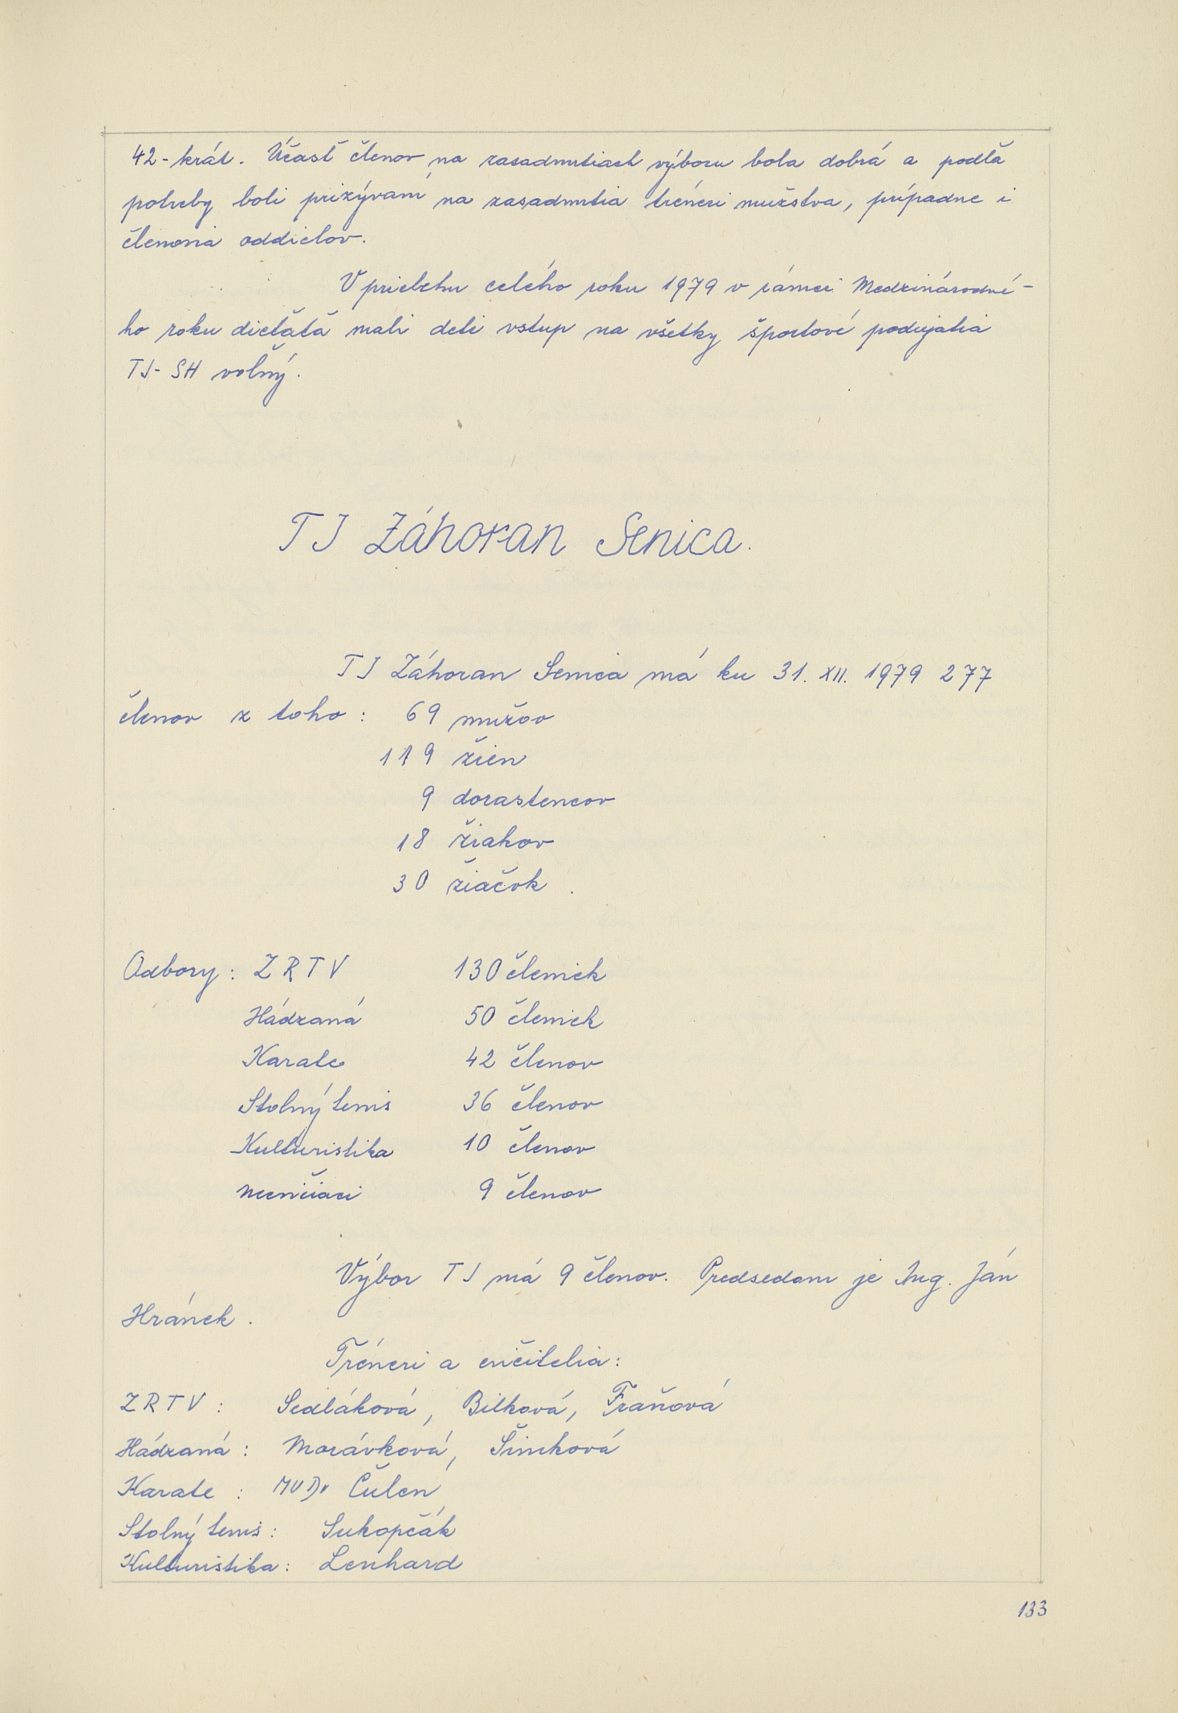 42-krát. Účasť členov na zasadnutiach výboru bola dobrá a podľa
potreby boli prizývaní na zasadnutia tréneri mužstva, prípadne i
členovia oddielov.
V priebehu celého roku 1979 v rámci Medzinárodné-
ho roku dieťaťa mali deti vstup na všetky športové podujatia
TJ-SH voľný.
TJ Záhoran Senica.
TJ Záhoran Senica má ku 31. XII. 1979 277
členov z toho: 69 mužov
119 žien
9 dorastencov
18 žiakov
30 žiačok.
Odbory: ZRTV 130 členiek
Hádzaná 50 členiek
Karate 42 členov
Stolný tenis 36 členov
Kulturistika 10 členov
9 členov
Výbor TJ má 9 členov. Predsedom je Ing. Ján
Hránek.
Tréneri a cvičitelia:
ZRTV: Sedláková, Bilková, Fraňová
Hádzaná: Morávková, Šimková
Karate: MUDr Čulen
Stolný tenis: Sukopčák
Kulturistika: Lenhard
133